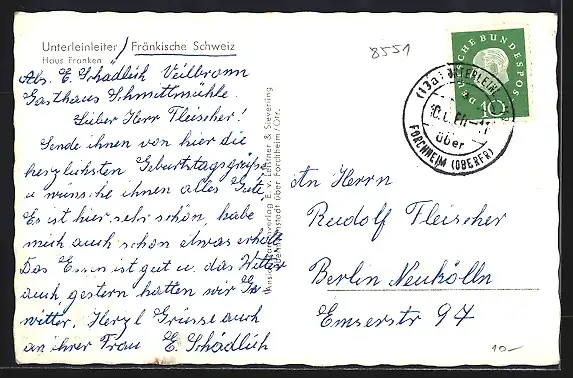 Unterleinleiter / Fränkische Schweiz
Haus Franken
Abs. E. Schädlich Veilbronn
Gasthaus Schmittmühle.
Lieber Herr Fleischer!
Sende ihnen von hier die
herzlichsten Geburtstagsgrüße
u wünsche ihnen alles Gute
Es ist hier sehr schön, habe
mich auch schon etwas erholt
Das Essen ist gut u. das Wetter
auch gestern hatten wir Ge
witter. Herzl Grüsse auch
an ihrer Frau E. Schädlich
Ansichtskartenverlag E. v. Leistner & Sieverling
über Forchheim/Ofr.
8551
DEUTSCHE BUNDESPOST
10
(13a) UNTERLEINLEITER
über
FORCHHEIM (OBERFR)
An Herrn
Rudolf Fleischer
Berlin Neukölln
Emserstr 97
10-